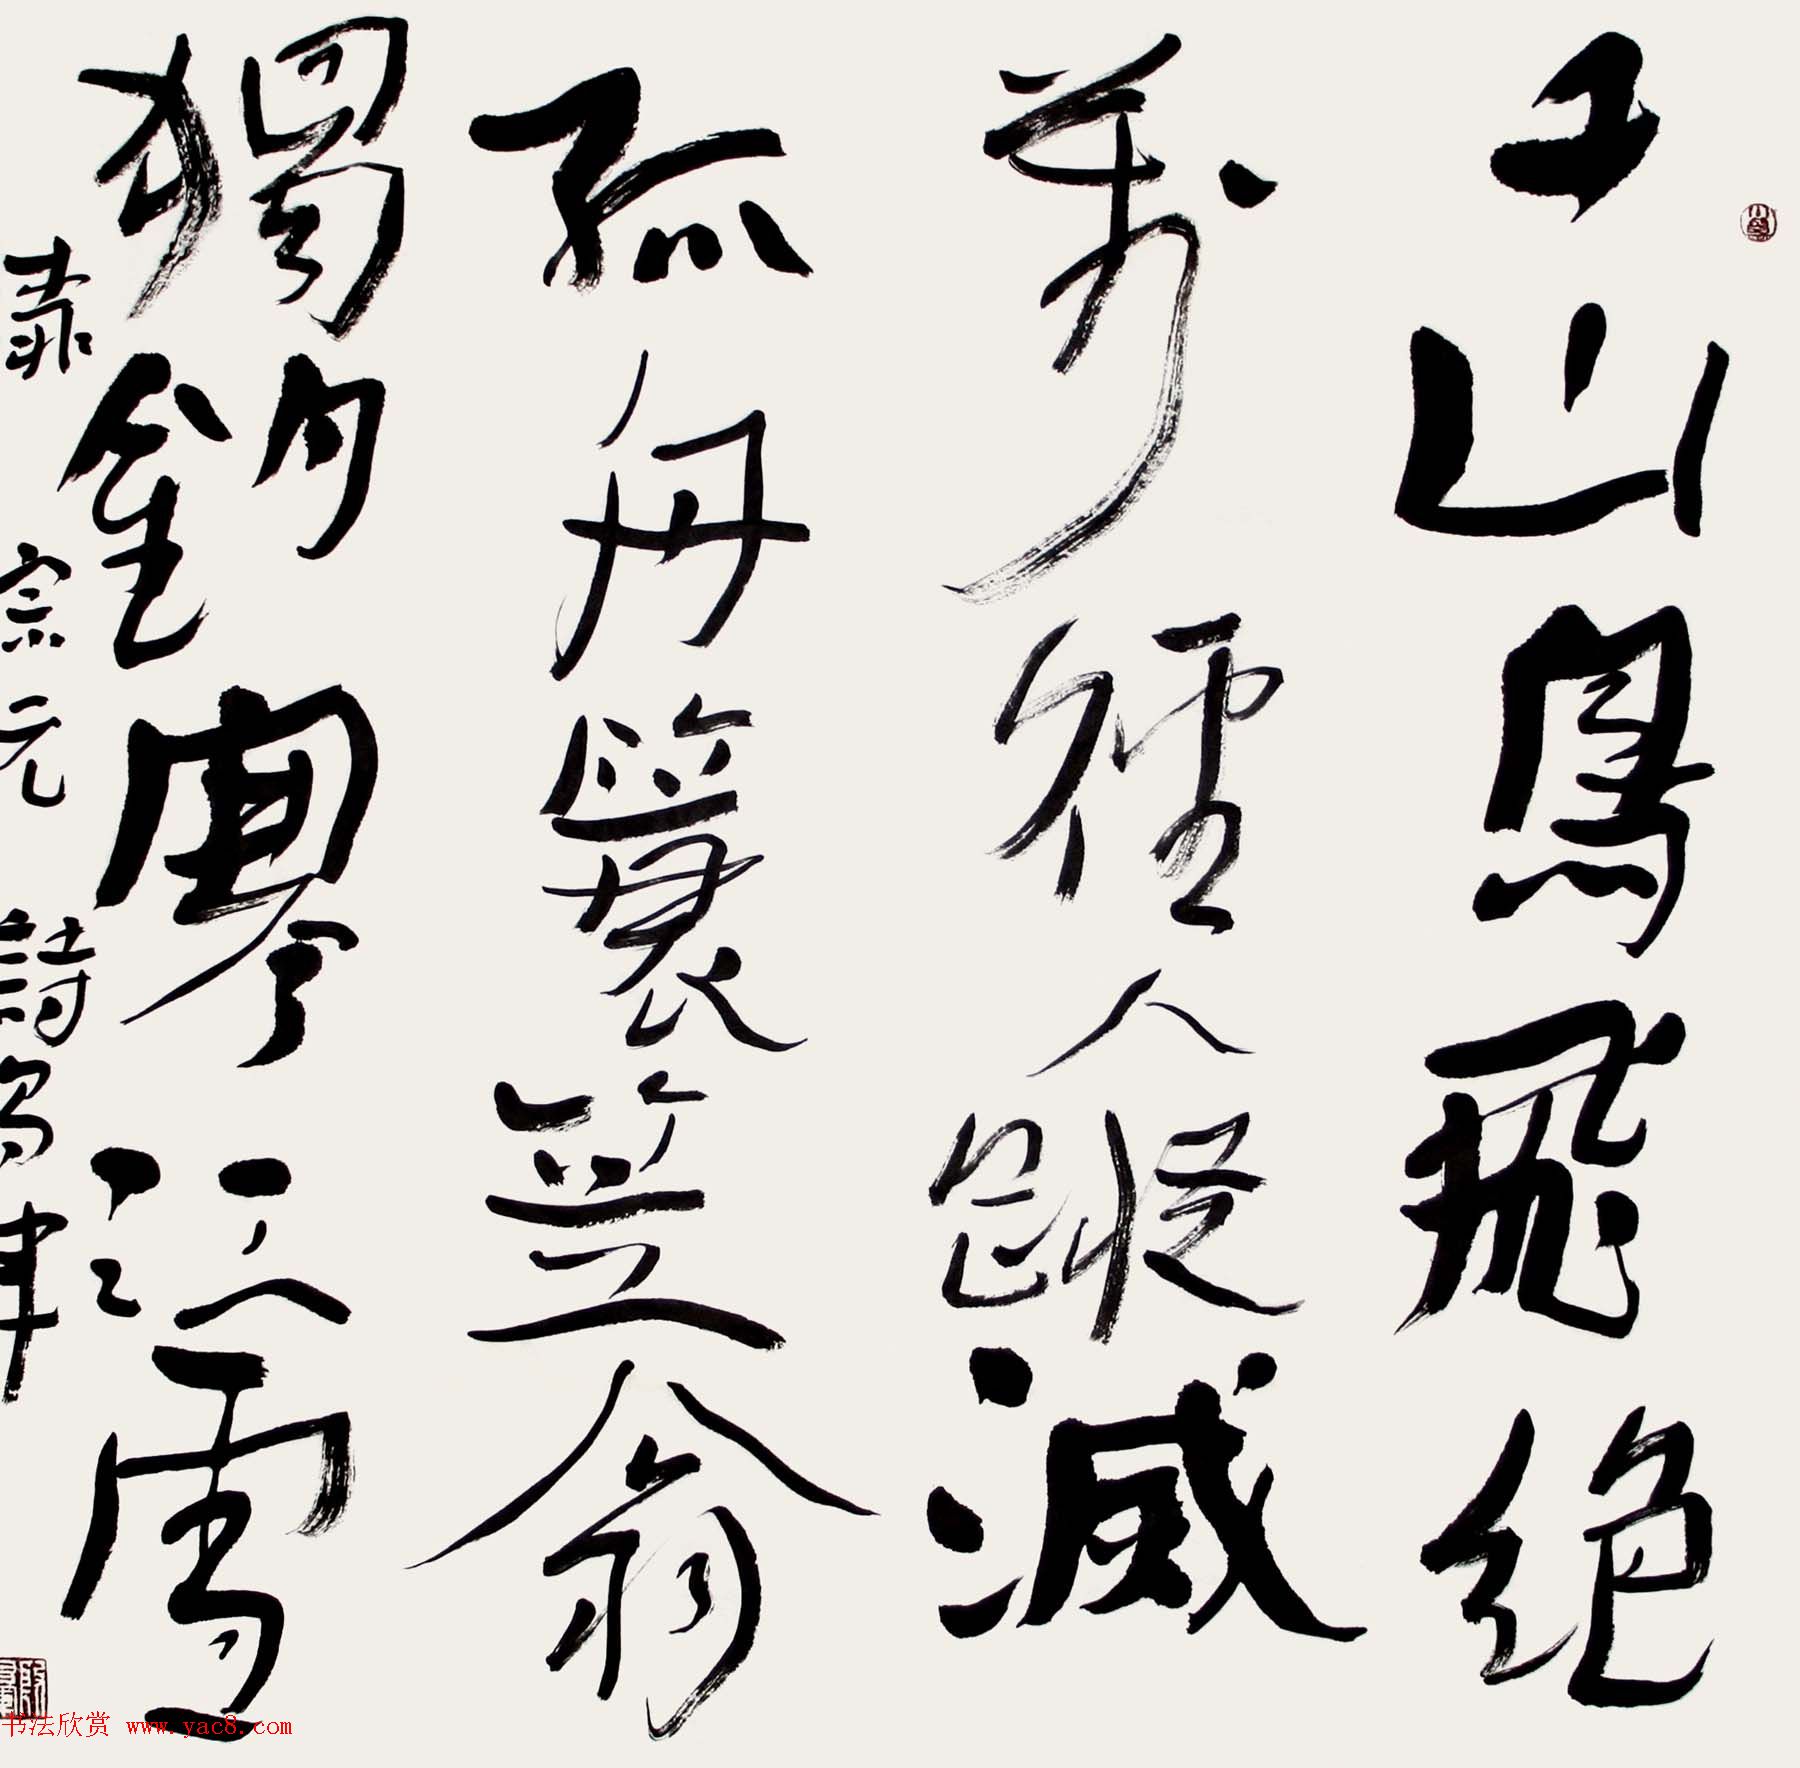 千山鳥飛絕
萬徑人蹤滅
孤舟簑笠翁
獨釣寒江雪
宗元詩
书法欣赏 www.yac8.com